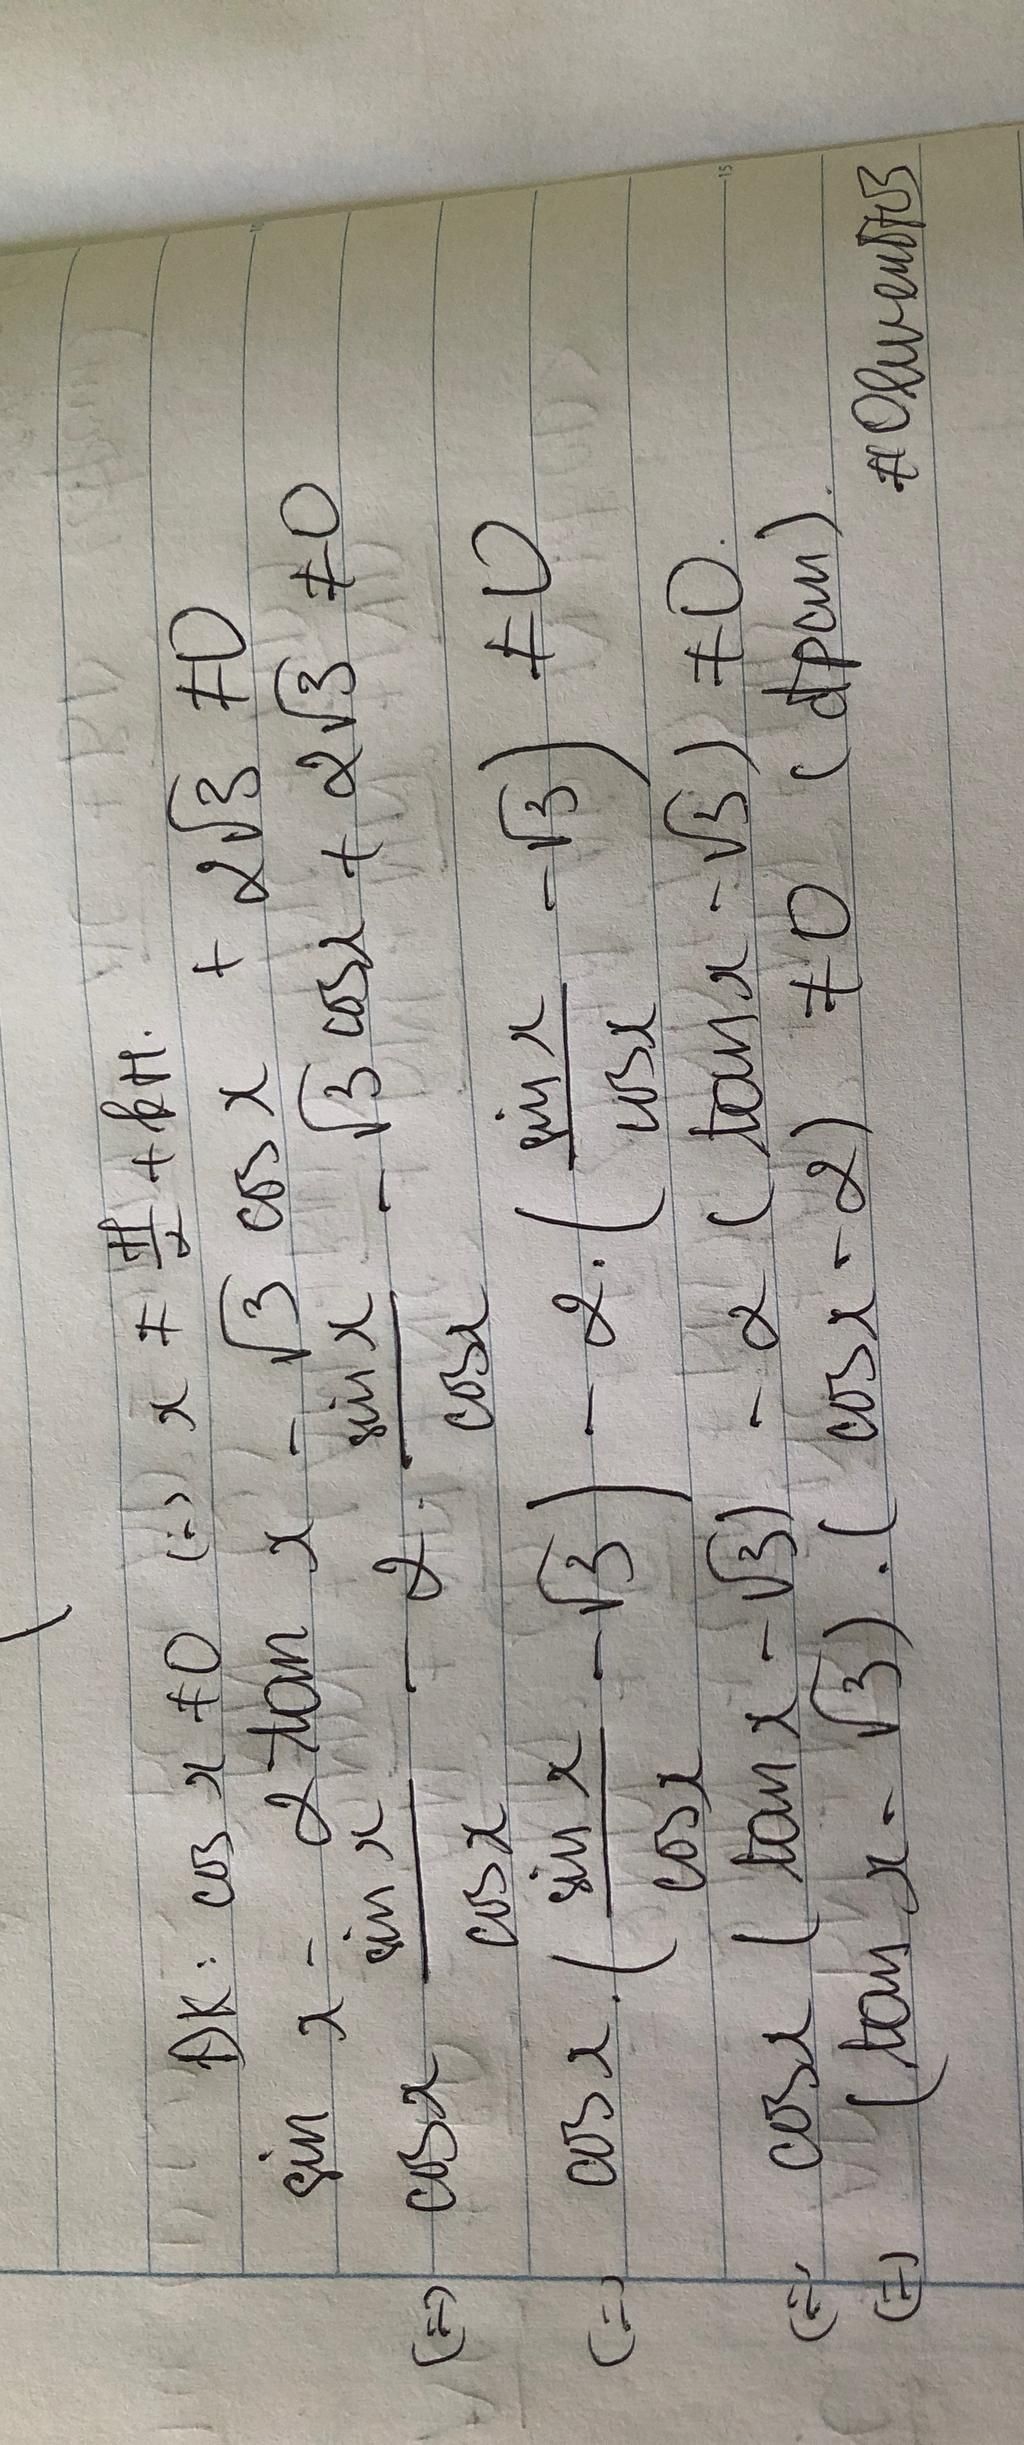 ĐK: cos x ≠ 0 (=) x ≠ π/2 + kπ.
sin x - 2 tan x - √3 cos x + 2√3 ≠ 0
(=) cosx · sin x/cosx - 2 · sin x/cosx - √3 cosx + 2√3 ≠ 0
(=) cosx · (sin x/cosx - √3) - 2 · (sin x/cosx - √3) ≠ 0
(=) cosx (tan x - √3) - 2 (tan x - √3) ≠ 0.
(=) (tan x - √3) · (cosx - 2) ≠ 0 (đpcm).